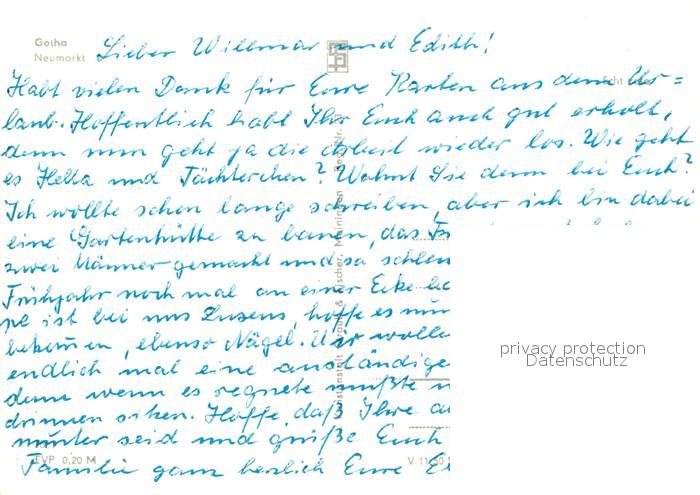 Gotha
Neumarkt
Lieber Willmar und Edith!
Echt
Habt vielen Dank für Eure Karten aus dem Ur=
laub. Hoffentlich habt Ihr Euch auch gut erholt,
denn nun geht ja die Arbeit wieder los. Wie geht
es Hella und Töchterchen? Wohnt Sie denn bei Euch?
Ich wollte schon lange schreiben, aber ich bin dabei
eine Gartenhütte zu bauen, das
zwei Männer gemacht und so
Frühjahr noch mal an einer Ecke
ist bei uns Luxus, hoffe es
bekommen, ebenso Nägel. Wir
endlich mal eine anständige
denn wenn es regnete mußte
drinnen sitzen. Hoffe, daß Ihr
munter seid und grüße Euch
Familie ganz herzlich Eure
EVP 0,20 M
V 11 50
privacy protection
Datenschutz